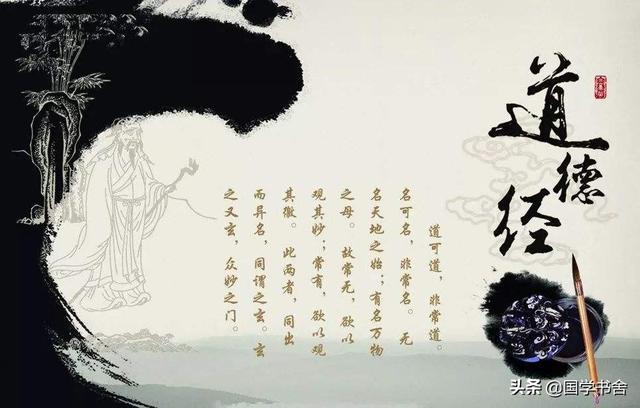 道德经
道可道，非常道。
名可名，非常名。无
名天地之始；有名万物
之母。故常无，欲以
观其妙；常有，欲以观
其徼。此两者，同出
而异名，同谓之玄。玄
之又玄，众妙之门。
头条 @国学书舍